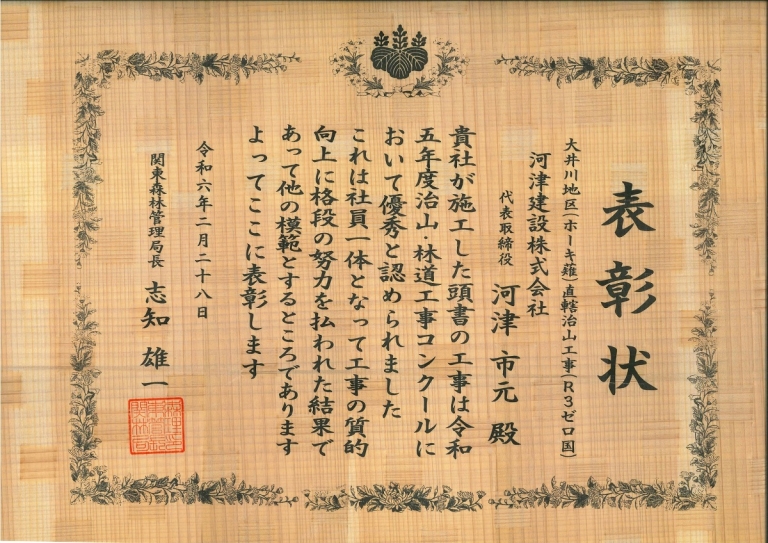 表彰状
大井川地区(ホーキ薙)直轄治山工事(R3ゼロ国)
河津建設株式会社
代表取締役 河津 市元 殿
貴社が施工した頭書の工事は令和
五年度治山・林道工事コンクールに
おいて優秀と認められました
これは社員一体となって工事の質的
向上に格段の努力を払われた結果で
あって他の模範とするところであります
よってここに表彰します
令和六年二月二十八日
関東森林管理局長 志知 雄一